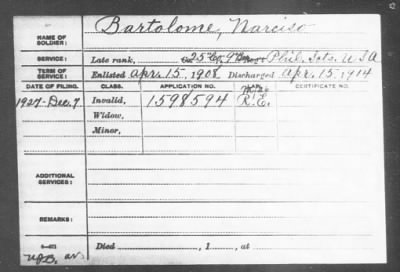 NAME OF SOLDIER: Bartolome, Narciso
SERVICE: Late rank, 25" Co, 9" Phil. Scts. U S A
TERM OF SERVICE: Enlisted Apr. 15, 1908, Discharged Apr. 15, 1914
DATE OF FILING. CLASS. APPLICATION NO. CERTIFICATE NO.
1927-Dec. 7 Invalid, 1598594 R.E.
Widow,
Minor,
ADDITIONAL SERVICES:
REMARKS:
Died , 1 , at